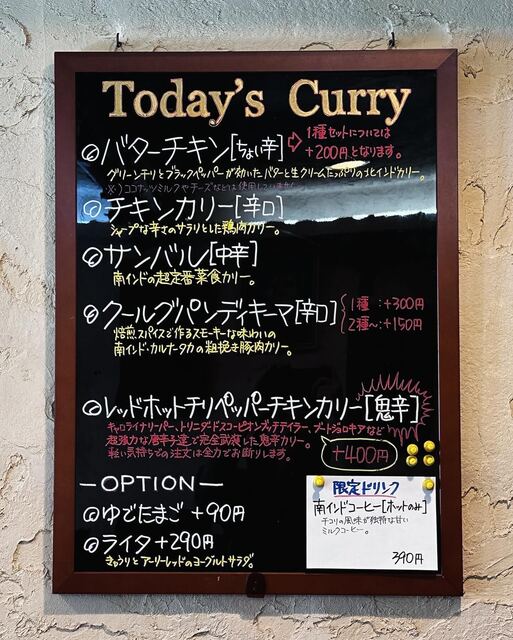 Today's Curry
◎バターチキン[ちょい辛]
⇨1種セットについては
+200円となります。
グリーンチリとブラックペッパーが効いたバターと生クリームたっぷりの北インドカリー。
※)ココナッツミルクやチーズなどは使用していません
◎チキンカリー[辛口]
シャープな辛さのサラリとした鶏肉カリー。
◎サンバル[中辛]
南インドの超定番菜食カリー。
◎クールグパンディキーマ[辛口]
1種:+300円
2種~:+150円
焙煎スパイスで作るスモーキーな味わいの
南インド・カルナータカの粗挽き豚肉カリー。
◎レッドホットチリペッパーチキンカリー[鬼辛]
キャロライナリーパー、トリニダードスコーピオンブッチテイラー、ブートジョロキアなど
超強力な唐辛子達で完全武装した鬼辛カリー。
軽い気持ちでの注文は全力でお断りします。
+400円
—OPTION—
◎ゆでたまご +90円
◎ライタ+290円
きゅうりとアーリーレッドのヨーグルトサラダ。
限定ドリンク
南インドコーヒー[ホットのみ]
チコリの風味が独特な甘い
ミルクコーヒー。
390円